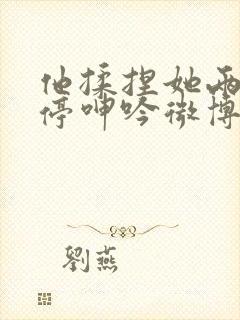 他揉捏她两
停呻吟微博
劉燕